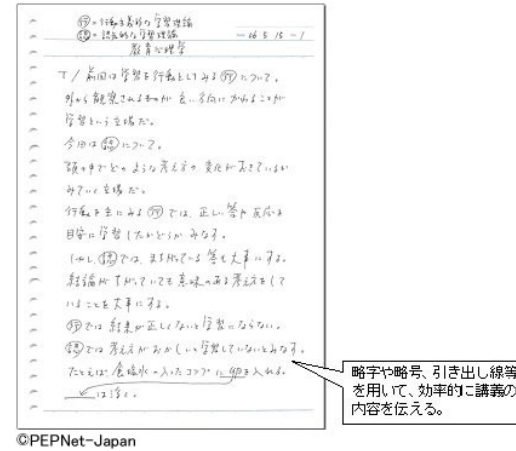 ㋵=行動主義的な学習理論
㋳=認知的な学習理論
教育心理学
T/前回は学習を行動としてみる㋵について。
外から観察されるものが良い方向にかわることが
学習という立場だ。
今回は㋳について。
頭の中でどのような考え方の変化がおきているか
みていく立場だ。
行動を主にみる㋵では、正しい答や反応を
目安に学習したかどうかみなす。
しかし、㋳では、まちがっている答も大事にする。
結論がちがっていても意味のある考え方をして
いることを大事にする。
㋵では結果が正しくないと学習にならない。
㋳では考え方がおかしいと学習していないとみなす。
たとえば食塩水の入ったコップに卵を入れる。
は浮く。
略字や略号、引き出し線等
を用いて、効率的に講義の
内容を伝える。
©PEPNet-Japan